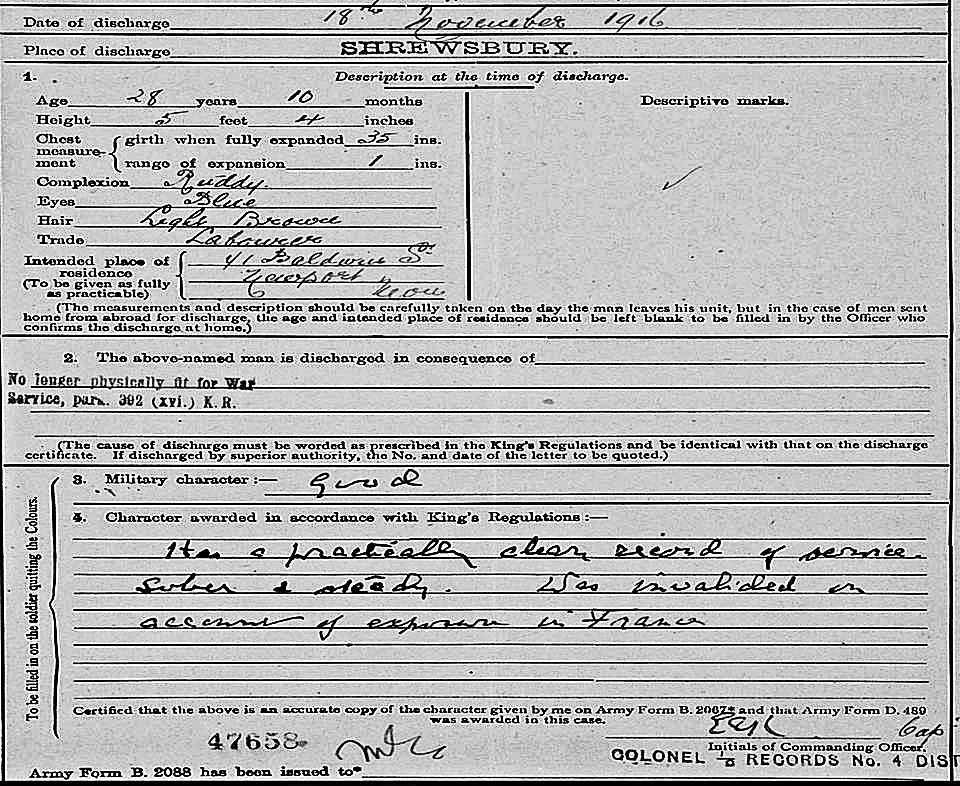 Date of discharge 18th November 1916
Place of discharge SHREWSBURY.
1. Description at the time of discharge.
Age 28 years 10 months
Descriptive marks.
Height 5 feet 4 inches
Chest measure-ment { girth when fully expanded 35 ins.
range of expansion 1 ins.
Complexion Ruddy.
Eyes Blue
Hair Light Brown
Trade Labourer
Intended place of residence 41 Baldwin St
(To be given as fully as practicable) Newport
Mon
(The measurements and description should be carefully taken on the day the man leaves his unit, but in the case of men sent
home from abroad for discharge, the age and intended place of residence should be left blank to be filled in by the Officer who
confirms the discharge at home.)
2. The above-named man is discharged in consequence of
No longer physically fit for War
Service, para. 392 (xvi.) K.R.
(The cause of discharge must be worded as prescribed in the King's Regulations and be identical with that on the discharge
certificate. If discharged by superior authority, the No. and date of the letter to be quoted.)
To be filled in on the soldier quitting the Colours.
3. Military character:— Good
4. Character awarded in accordance with King's Regulations:—
Has a practically clean record of service.
Sober & steady. Was invalided on
account of exposure in France
Certified that the above is an accurate copy of the character given by me on Army Form B. 2067* and that Army Form D. 489
was awarded in this case.
Cap
47658
Initials of Commanding Officer.
COLONEL I/c RECORDS No. 4 DIST
Army Form B. 2088 has been issued to*